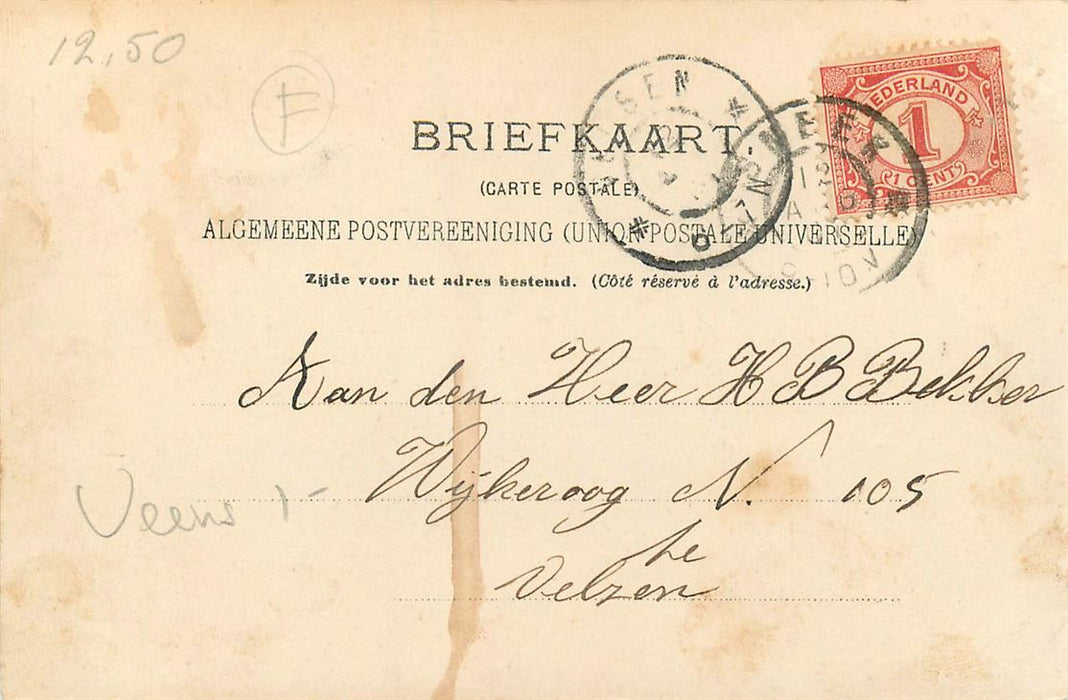 12,50
F
NEDERLAND
1
1 CENT
BRIEFKAART
(CARTE POSTALE)
ALGEMEENE POSTVEREENIGING (UNION POSTALE UNIVERSELLE)
Zijde voor het adres bestemd. (Côté réservé à l'adresse.)
Aan den Heer H B Bekker
Wijkeroog N. 105
te
Velzen